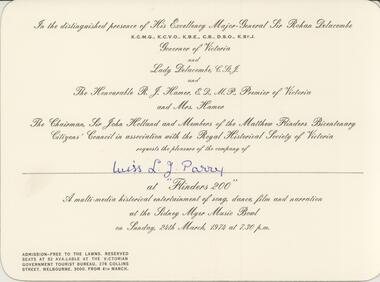 In the distinguished presence of His Excellency Major-General Sir Rohan Delacombe
K.C.M.G., K.C.V.O., K.B.E., C.B., D.S.O., K.St.J.
Governor of Victoria
and
Lady Delacombe, C.St.J.
and
The Honourable R. J. Hamer, E.D., M.P., Premier of Victoria
and Mrs. Hamer
The Chairman, Sir John Holland and Members of the Matthew Flinders Bicentenary
Citizens' Council in association with the Royal Historical Society of Victoria
requests the pleasure of the company of
Miss L J Parry
at "Flinders 200"
A multi-media historical entertainment of song, dance, film and narration
at the Sidney Myer Music Bowl
on Sunday, 24th March, 1974 at 7.30 p.m.
ADMISSION-FREE TO THE LAWNS. RESERVED
SEATS AT $2 AVAILABLE AT THE VICTORIAN
GOVERNMENT TOURIST BUREAU, 276 COLLINS
STREET, MELBOURNE, 3000, FROM 4TH MARCH.